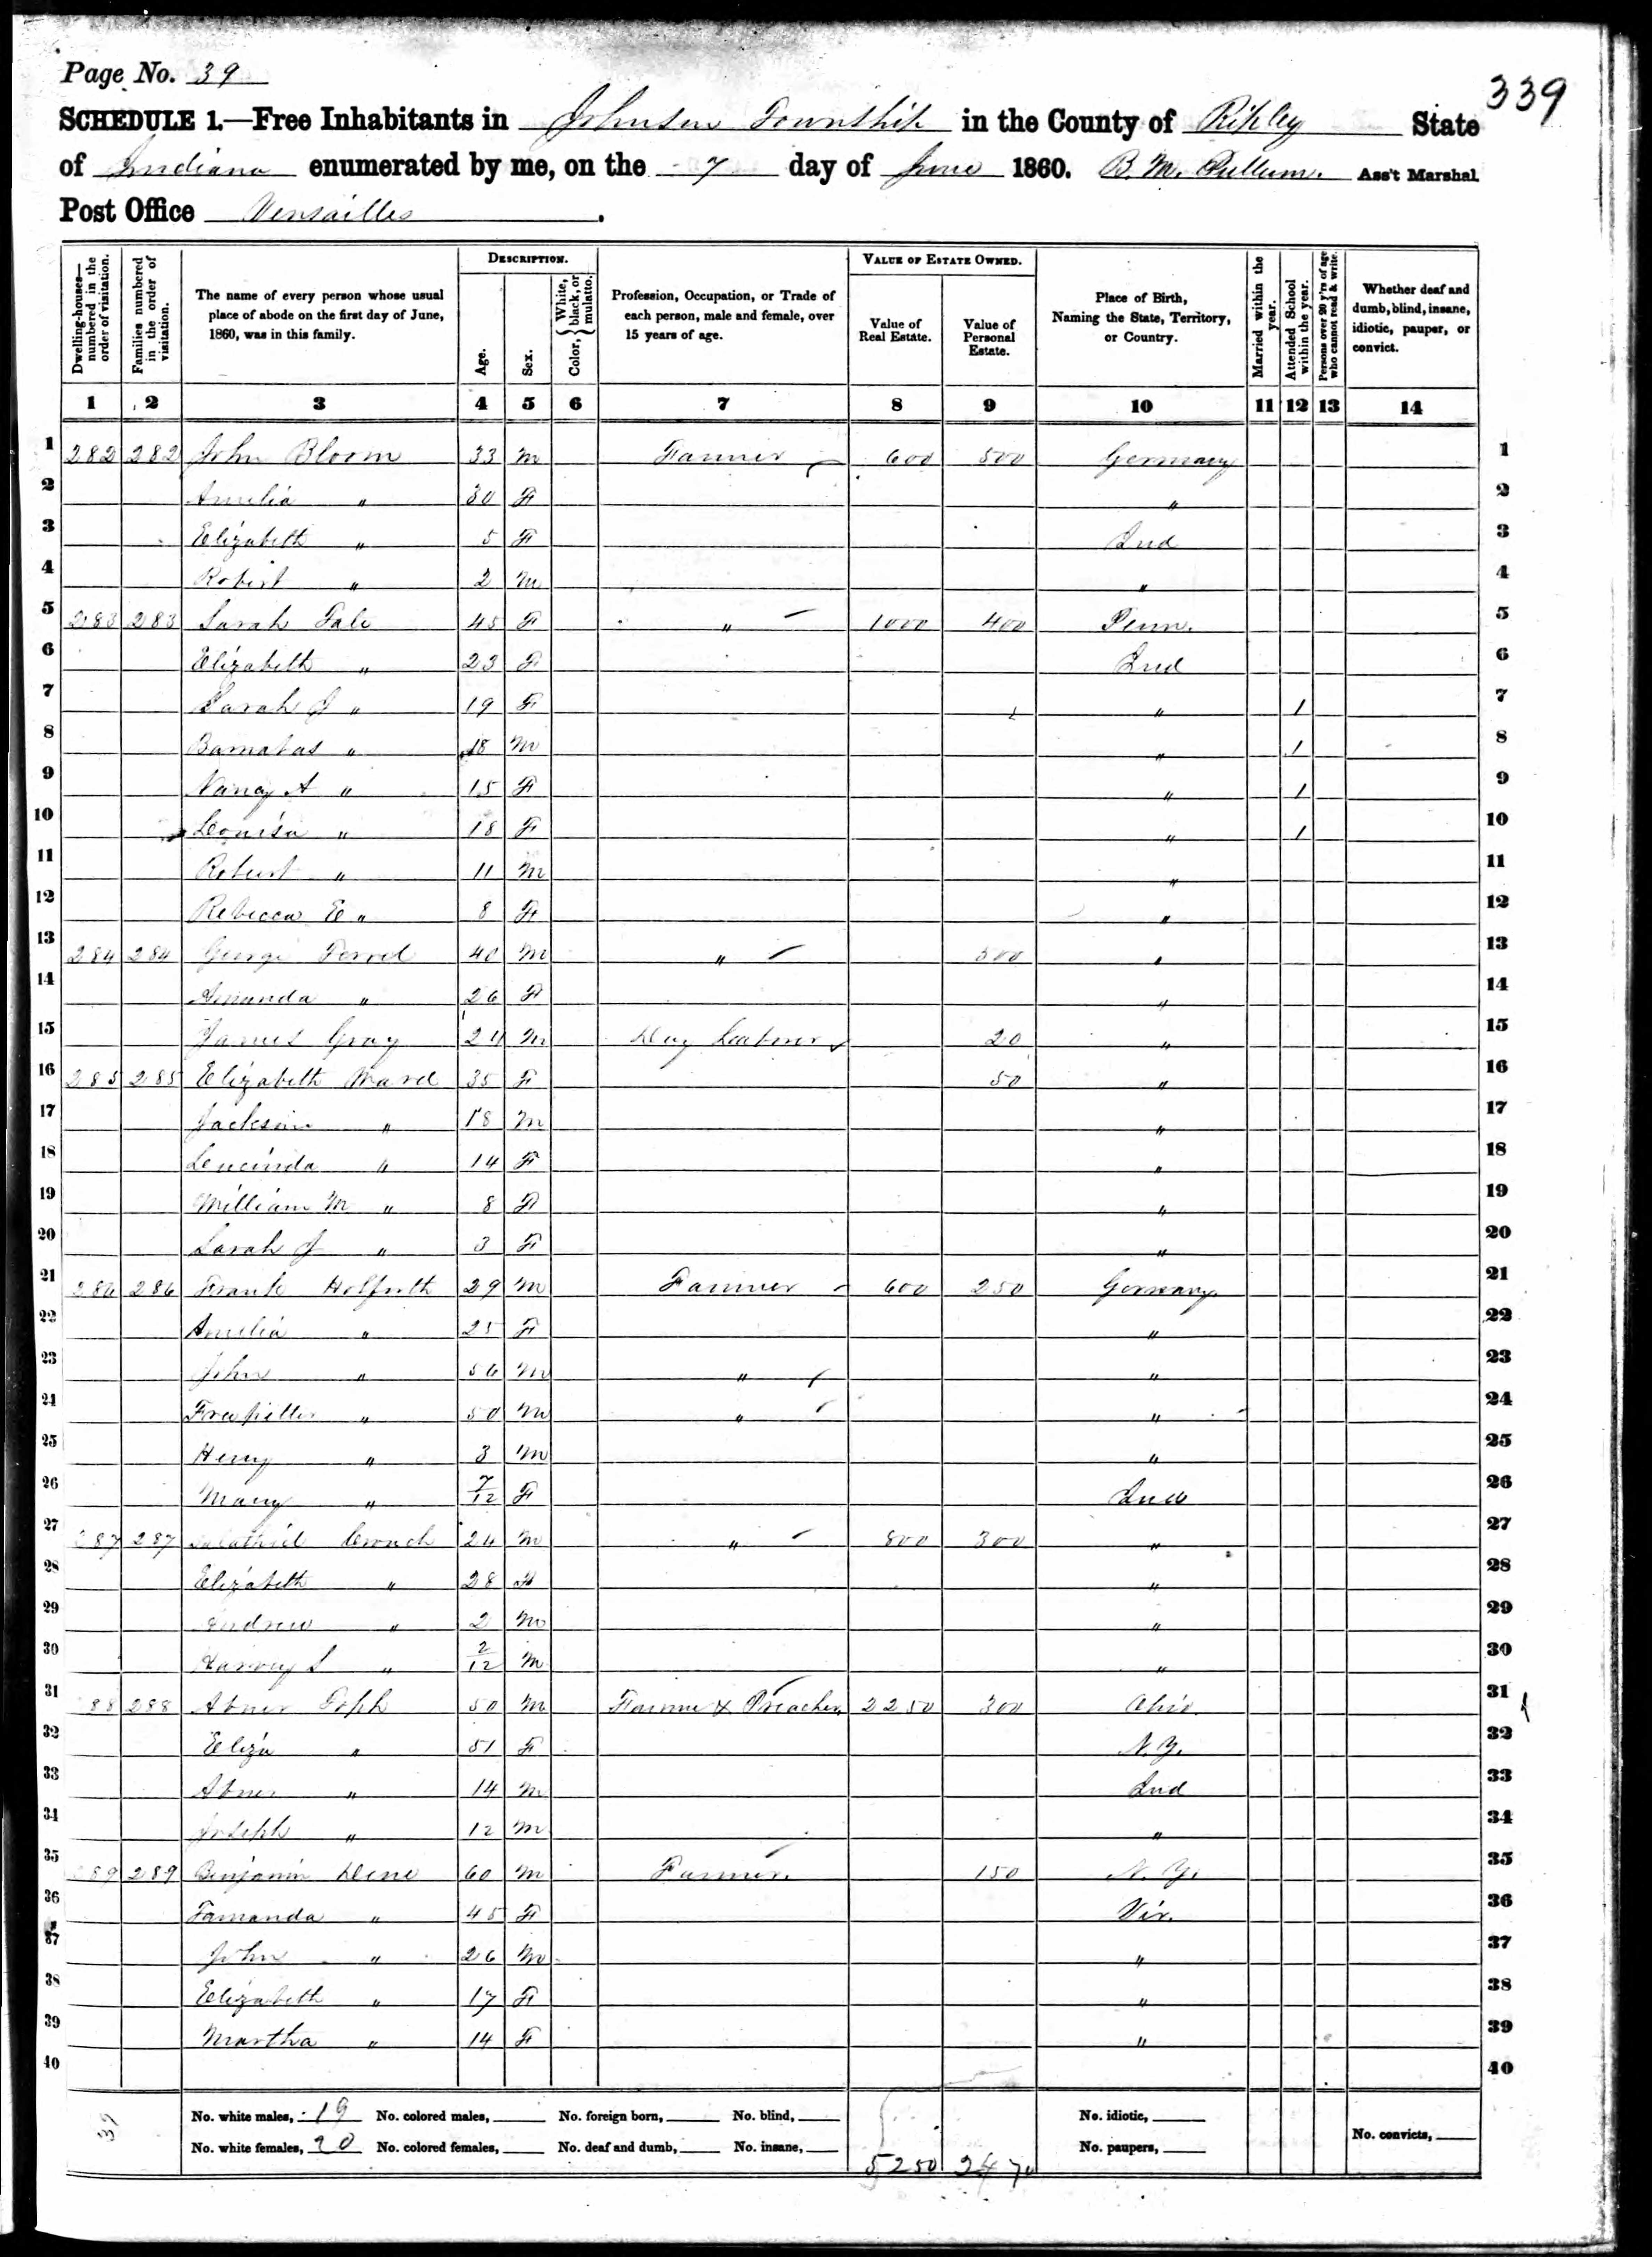 Page No. 39
339
SCHEDULE 1.—Free Inhabitants in Johnson Township in the County of Ripley State
of Indiana enumerated by me, on the 7 day of June 1860. B. M. Cullum. Ass't Marshal
Post Office Versailles.
Dwelling-houses—numbered in the order of visitation. Families numbered in the order of visitation. The name of every person whose usual place of abode on the first day of June, 1860, was in this family. DESCRIPTION. Age. Sex. Color, {White, black, or mulatto. Profession, Occupation, or Trade of each person, male and female, over 15 years of age. VALUE OF ESTATE OWNED. Value of Real Estate. Value of Personal Estate. Place of Birth, Naming the State, Territory, or Country. Married within the year. Attended School within the year. Persons over 20 y'rs of age who cannot read & write. Whether deaf and dumb, blind, insane, idiotic, pauper, or convict.
1 2 3 4 5 6 7 8 9 10 11 12 13 14
1 282 282 John Bloom 33 m Farmer 600 500 Germany 1
2 Amelia " 30 F " 2
3 Elizabeth " 5 F Ind 3
4 Robert " 2 m " 4
5 283 283 Sarah 45 F " 1000 400 Penn. 5
6 Elizabeth " 23 F Ind 6
7 Sarah J " 19 F " 1 7
8 Barnabas " 18 m " 1 8
9 Nancy A " 15 F " 1 9
10 Louisa " 18 F " 1 10
11 Robert " 11 m " 11
12 Rebecca E " 8 F " 12
13 284 284 George 40 m " 500 " 13
14 Amanda " 26 F " 14
15 James Gray 24 m Day Laborer 20 " 15
16 285 285 Elizabeth Ward 35 F 50 " 16
17 Jackson " 18 m " 17
18 Leucinda " 14 F " 18
19 William M " 8 F " 19
20 Sarah J " 3 F " 20
21 286 286 Frank 29 m Farmer 600 250 Germany 21
22 Amelia " 25 F " 22
23 John " 56 m " " 23
24 " 50 m " " 24
25 Henry " 3 m " 25
26 Mary " 7/12 F Ind 26
27 287 287 Salathiel Crouch 24 m " 800 300 " 27
28 Elizabeth " 28 F " 28
29 Andrew " 2 m " 29
30 Harvey S " 2/12 m " 30
31 88 288 Abner 50 m Farmer & Preacher 2250 300 Ohio 31
32 Eliza " 51 F N.Y. 32
33 Abner " 14 m Ind 33
34 Joseph " 12 m " 34
35 289 289 Benjamin 60 m Farmer. 150 N.Y. 35
36 Tamanda " 45 F Vir. 36
37 John " 26 m " 37
38 Elizabeth " 17 F " 38
39 Martha " 14 F " 39
40 40
39
No. white males, 19 No. colored males, No. foreign born, No. blind, No. idiotic,
No. white females, 20 No. colored females, No. deaf and dumb, No. insane, No. paupers, No. convicts,
5250 2470